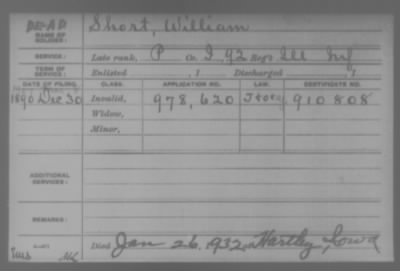 DEAD
NAME OF SOLDIER: Short, William
SERVICE: Late rank, P Co. I, 92 Reg't Ill Inf
TERM OF SERVICE: Enlisted , 1 Discharged , 1
DATE OF FILING. CLASS. APPLICATION NO. LAW. CERTIFICATE NO.
1890 Dec 30 Invalid, 978,620 910808
Widow,
Minor,
ADDITIONAL SERVICES:
REMARKS:
Died Jan 26, 1932, Hartley, Iowa